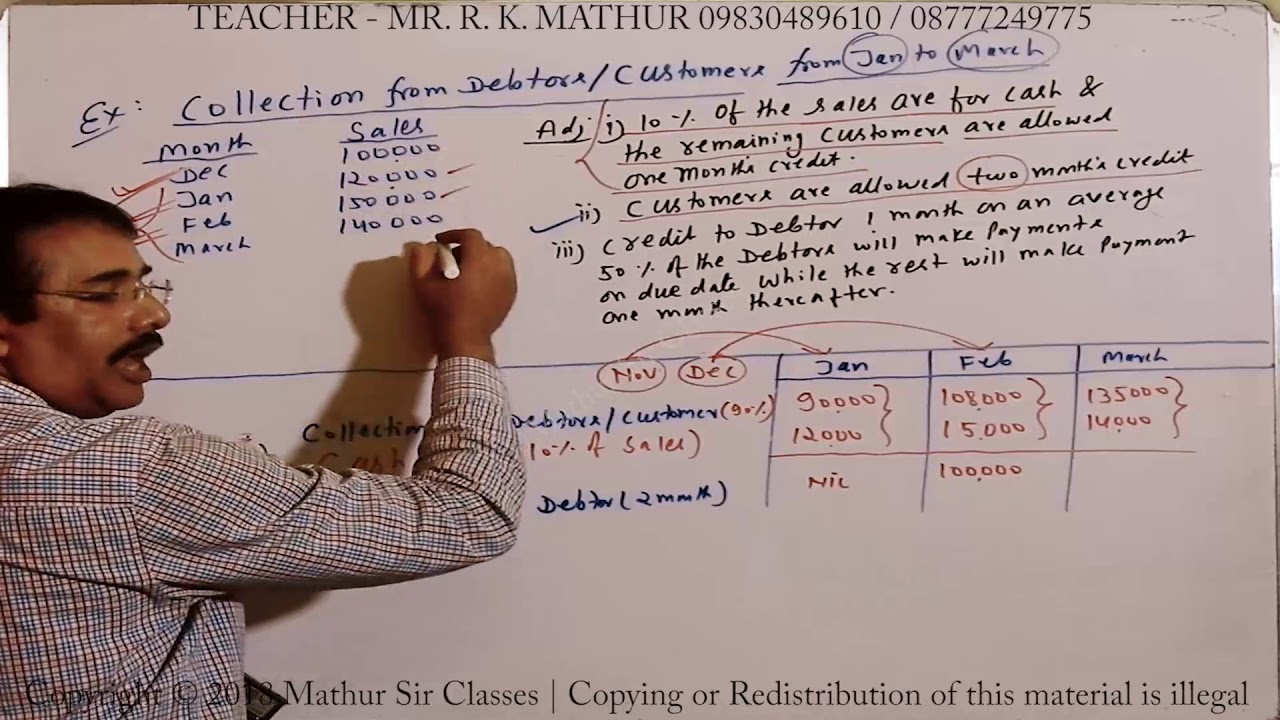 TEACHER - MR. R. K. MATHUR 09830489610 / 08777249775
Ex: Collection from Debtors/Customers from Jan to March
Month Sales
Dec 100000
Jan 120000
Feb 150000
March 140000
Adj: i) 10% of the sales are for cash &
the remaining customers are allowed
one months credit.
ii) Customers are allowed two months credit
iii) Credit to Debtor 1 month on an average
50% of the Debtors will make payments
on due date while the rest will make payment
one month thereafter.
Nov Dec Jan Feb March
Collection Debtors/Customer (90%) 90000 108000 135000
Cash 10% of Sales) 12000 15000 14000
Debtor (2 month) Nil 100000
Copyright © 2018 Mathur Sir Classes | Copying or Redistribution of this material is illegal